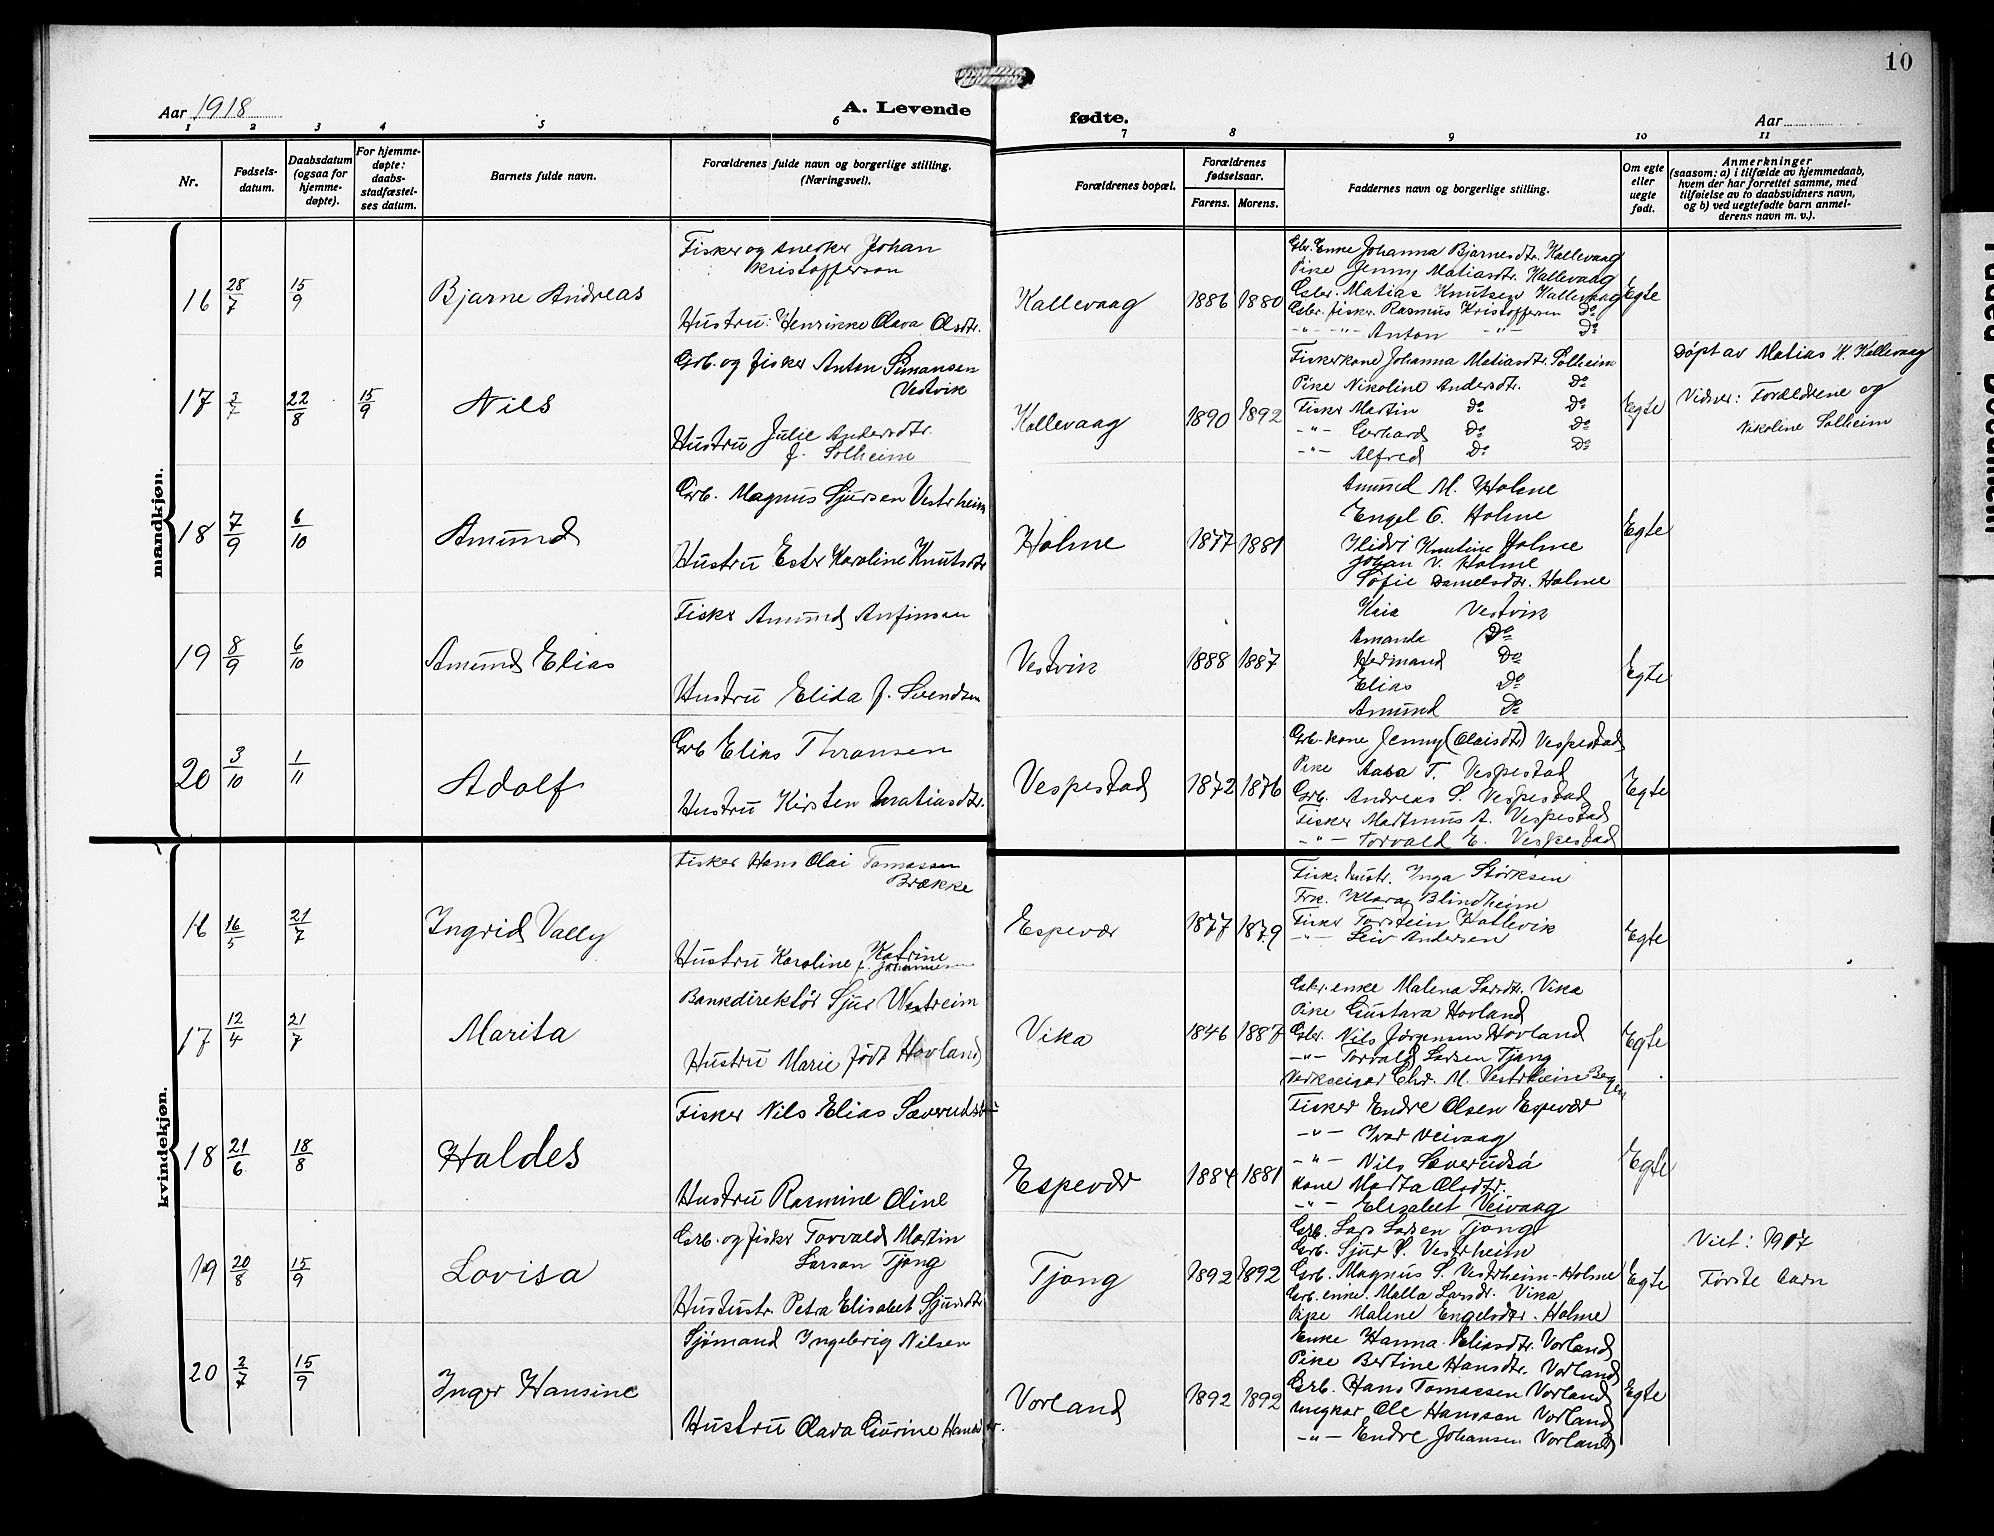 10
Aar 1918
A. Levende
fødte.
Aar
1 2 3 4 5 6 7 8 9 10 11
Nr.
Fødsels-
datum.
Daabsdatum
(ogsaa for
hjemme-
døpte).
For hjemme-
døpte:
daabs-
stadfæstel-
ses datum.
Barnets fulde navn.
Forældrenes fulde navn og borgerlige stilling.
(Næringsvei).
Forældrenes bopæl.
Forældrenes
fødselsaar.
Farens. Morens.
Faddernes navn og borgerlige stilling.
Om egte
eller
uegte
født.
Anmerkninger
(saasom: a) i tilfælde av hjemmedaab,
hvem der har forrettet samme, med
tilføielse av to daabsvidners navn,
og b) ved uegtefødte barn anmel-
derens navn m. v.).
mandkjøn.
16 28/7 15/9 Bjarne Andreas
Fisker og snekker Johan
Kristoffersen
Hustru: Henrikke Olava Olsdtr.
Kallevaag 1886 1880
Gbr. Enke Johanna Bjarnesdtr. Kallevaag
Pike Jenny Matiasdtr. Kallevaag
Gbr. Matias Knutsen Kallevaag
Gbr. fisker Rasmus Kristoffersen Do
-"- -"- Anton -"- Do
Egte
17 3/7 22/8 15/9 Nils
Grb. og fisker Anton Simonsen
Vestvik
Hustru Julie Andersdtr.
f. Solheim
Kallevaag 1890 1892
Fiskerkone Johanna Matiasdtr. Solheim
Pike Nikoline Andersdtr. Do
Fisker Martin Do Do
-"- Gerhard Do Do
-"- Alfred Do Do
Egte
Døpt av Matias K. Kallevaag
Vidner: Forældrene og
Nikoline Solheim
18 7/9 6/10 Amund
Grb. Magnus Sjursen Vestrheim
Hustru Ester Karoline Knutsdtr
Holme 1877 1881
Amund M. Holme
Engel O. Holme
Knutine Holme
Johan V. Holme
Sofie Danielsdtr. Holme
Egte
19 8/9 6/10 Amund Elias
Fisker Amund Anfinsen
Hustru Elida f. Svendsen
Vestvik 1888 1887
Kaia Vestvik
Amanda Do
Hedmand Do
Elias Do
Amund Do
Egte
20 3/10 1/11 Adolf
Grb Elias Thoransen
Hustru Kirsten Matiasdtr.
Vespestad 1872 1876
Grb.-kone Jenny (Olaisdtr) Vespestad
Pike Aasa T. Vespestad
Grb. Andreas S. Vespestad
Fisker Martinus A. Vespestad
-"- Torvald E. Vespestad
Egte
kvindekjøn.
16 16/5 21/7 Ingrid Vally
Fisker Hans Olai Tomassen
Brække
Hustru Karoline Katrine
f. Johannesen
Espevær 1877 1879
Fisk. hustr. Inga Størksen
Frk. Klara Blindheim
Fisker Torstein Hallevik
-"- Leiv Andersen
Egte
17 12/4 21/7 Marita
Bankdirektør Sjur Westreim
Hustru Marie født Hovland
Vika 1846 1887
Gbr. enke Malena Larsdtr. Vika
Pike Gustava Hovland
Gbr. Nils Jørgensen Hovland
-"- Torvald Larsen Tjong
Verkseier Chr. M. Vestrheim
Egte
18 21/6 18/8 Haldes
Fisker Nils Elias Sæverudsø
Hustru Rasmine Oline
Espevær 1884 1881
Fisker Endre Olsen Espevær
-"- Ivar Veivaag
-"- Nils Sæverudsø
Kone Marta Olsdtr.
-"- Elisabet Veivaag
Egte
19 20/8 15/9 Lovisa
Grb. og fisker Torvald Martin
Larsen Tjong
Hustustr. Petra Elisabet Sjursdtr
Tjong 1892 1892
Grb. Lars Larsen Tjong
Grb. Sjur S. Vestrheim
Grb. Magnus S. Vestrheim-Holme
Grb. enke. Malla Larsdr. Vika
Pike Malene Engelsdtr. Holme
Egte
Viet: 1917
Første barn
20 2/7 15/9 Inger Hansine
Sjømand Ingebrig Nilsen
Hustru Olava Gurine Hansdtr.
Vorland 1892 1892
Enke Hanna Eliasdtr. Vorland
Pike Bertine Hansdtr. Vorland
Grb. Hans Tomassen Vorland
Ungkar Ole Hansson Vorland
-"- Endre Johansen Vorland
Egte